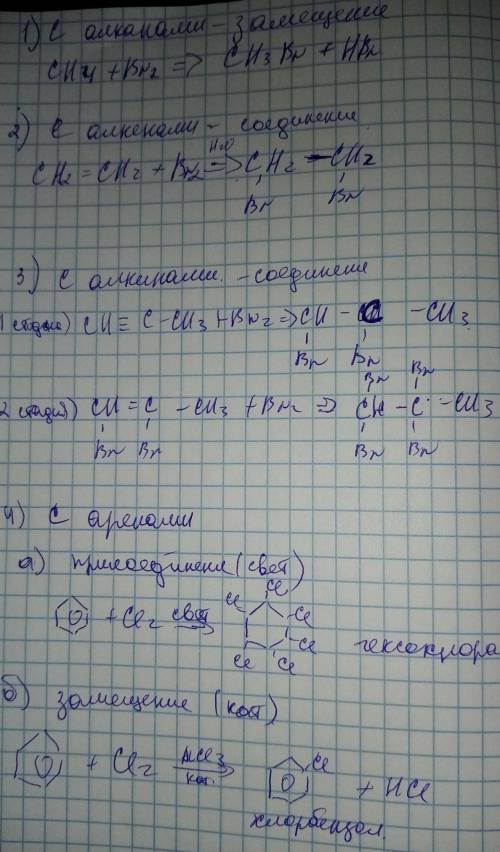 1) С алканами - замещение
CH4 + Br2 => CH3Br + HBr
2) С алкенами - соединение
H2O
CH2 = CH2 + Br2 => CH2 - CH2
Br Br
3) С алкинами - соединение
1 стадия) CH ≡ C - CH3 + Br2 => CH - C - CH3
Br Br
Br Br
2 стадия) CH = C - CH3 + Br2 => CH - C - CH3
Br Br Br Br
4) С аренами
а) присоединение (свет)
Cl
+ Cl2 свет Cl Cl
Cl гексахлора
Cl Cl
б) замещение (кат)
+ Cl2 AlCl3 Cl + HCl
кат.
хлорбензол.